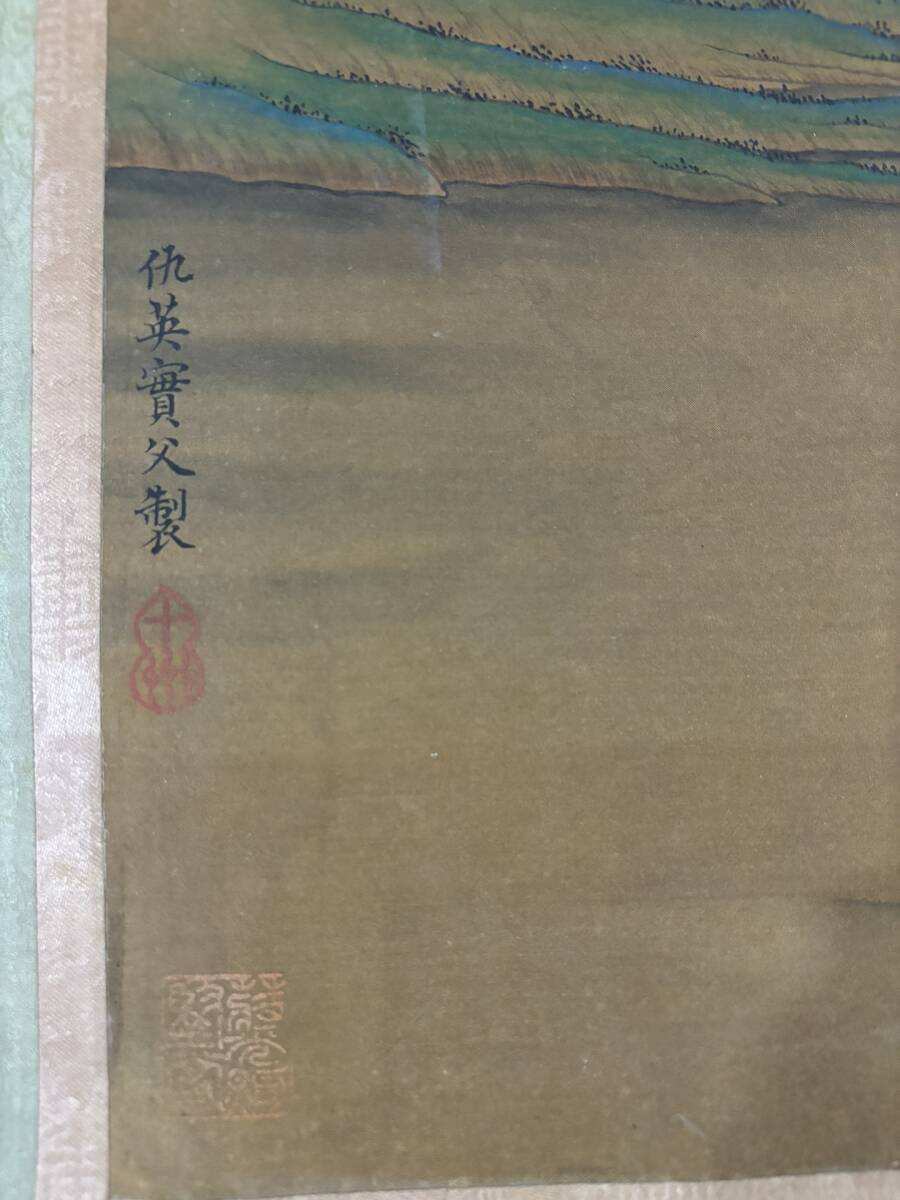 仇英實父製
十州